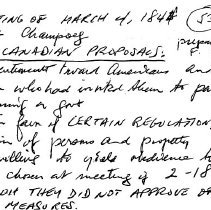 TING OF MARCH 4, 184
Champoeg
CANADIAN PROPOSALS:
toward Americans and
who had invited them to
a Govt
favor of CERTAIN REGULATION
of persons and property
to yield obedience to
chosen at meeting of 2-18
THEY DID NOT APPROVE OF
MEASURES.